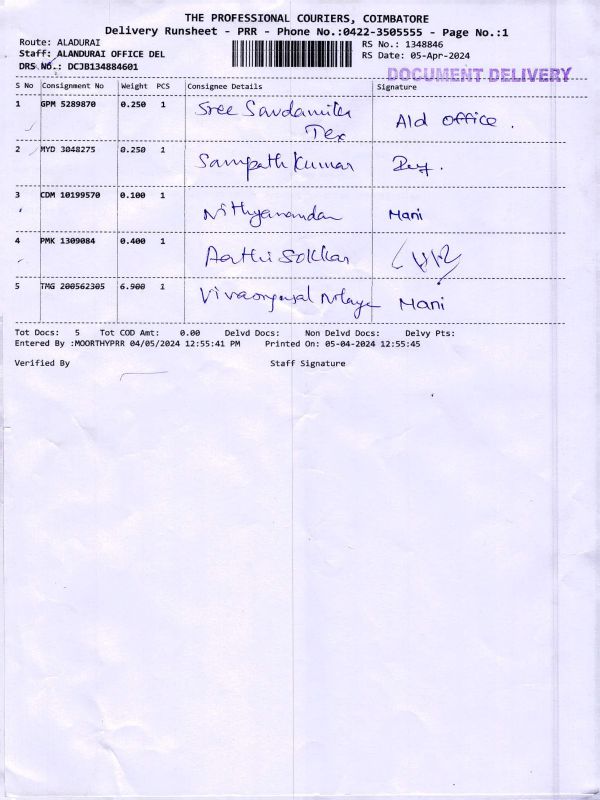 THE PROFESSIONAL COURIERS, COIMBATORE
Delivery Runsheet - PRR - Phone No.:0422-3505555 - Page No.:1
Route: ALADURAI
RS No.: 1348846
Staff: ALANDURAI OFFICE DEL
RS Date: 05-Apr-2024
DRS No.: DCJB134884601
DOCUMENT DELIVERY
S No Consignment No Weight PCS Consignee Details Signature
1 GPM 5289870 0.250 1 Sree Tex Ald office .
2 MYD 3048275 0.250 1 Sampath Kumar
3 CDM 10199570 0.100 1 Nithyanandan Mani
4 PMK 1309084 0.400 1 Aarthi
5 TMG 200562305 6.900 1 Mani
Tot Docs: 5 Tot COD Amt: 0.00 Delvd Docs: Non Delvd Docs: Delvy Pts:
Entered By :MOORTHYPRR 04/05/2024 12:55:41 PM Printed On: 05-04-2024 12:55:45
Verified By Staff Signature